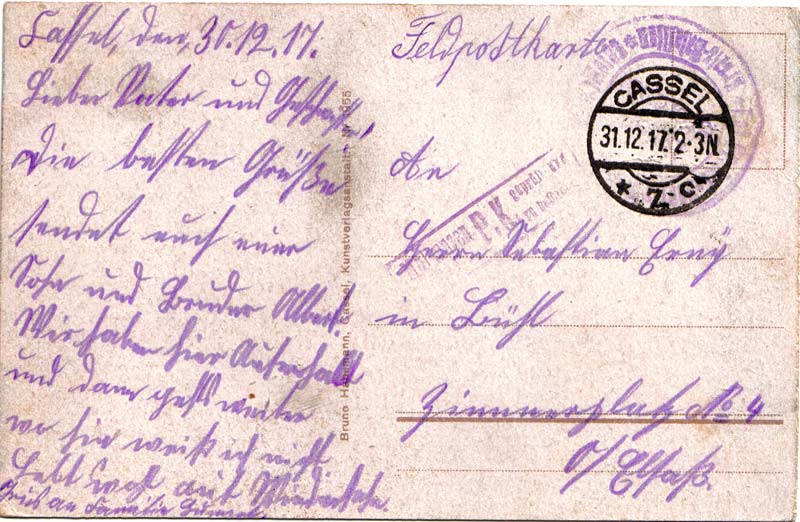 Cassel, den, 30.12.17.
Lieber Vater und Geschwister!
Die besten Grüße
sendet euch euer
Sohn und Bruder Albert.
Wir haben hier Aufenthalt
und dann gehts weiter
wo hin weiß ich nicht
Lebt wohl auf Wiedersehn.
Grus an Familie
Bruno Hansmann, Cassel, Kunstverlagsanstalt.
Feldpostkarte
CASSEL
31.12.17. 2-3N
* 7.
P.K.
An
Herrn Sebastian Erny
in Bühl
Zimmerplatz No 4
O/Elsaß.